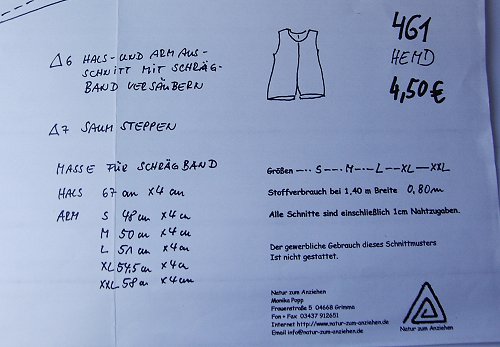 △6 HALS- UND ARMAUS-
SCHNITT MIT SCHRÄG-
BAND VERSÄUBERN
△7 SAUM STEPPEN
MASSE FÜR SCHRÄGBAND
HALS 67 cm x 4 cm
ARM S 48 cm x 4 cm
M 50 cm x 4 cm
L 51 cm x 4 cm
XL 54,5 cm x 4 cm
XXL 58 cm x 4 cm
461
HEMD
4,50 €
Größen —·· S —·· M —·— L —— XL —— XXL
Stoffverbrauch bei 1,40 m Breite 0,80 m
Alle Schnitte sind einschließlich 1cm Nahtzugaben.
Der gewerbliche Gebrauch dieses Schnittmusters
Ist nicht gestattet.
Natur zum Anziehen
Monika Popp
Frauenstraße 5 04668 Grimma
Fon + Fax 03437 912651
Internet http://www.natur-zum-anziehen.de
Email info@natur-zum-anziehen.de
Natur zum Anziehen